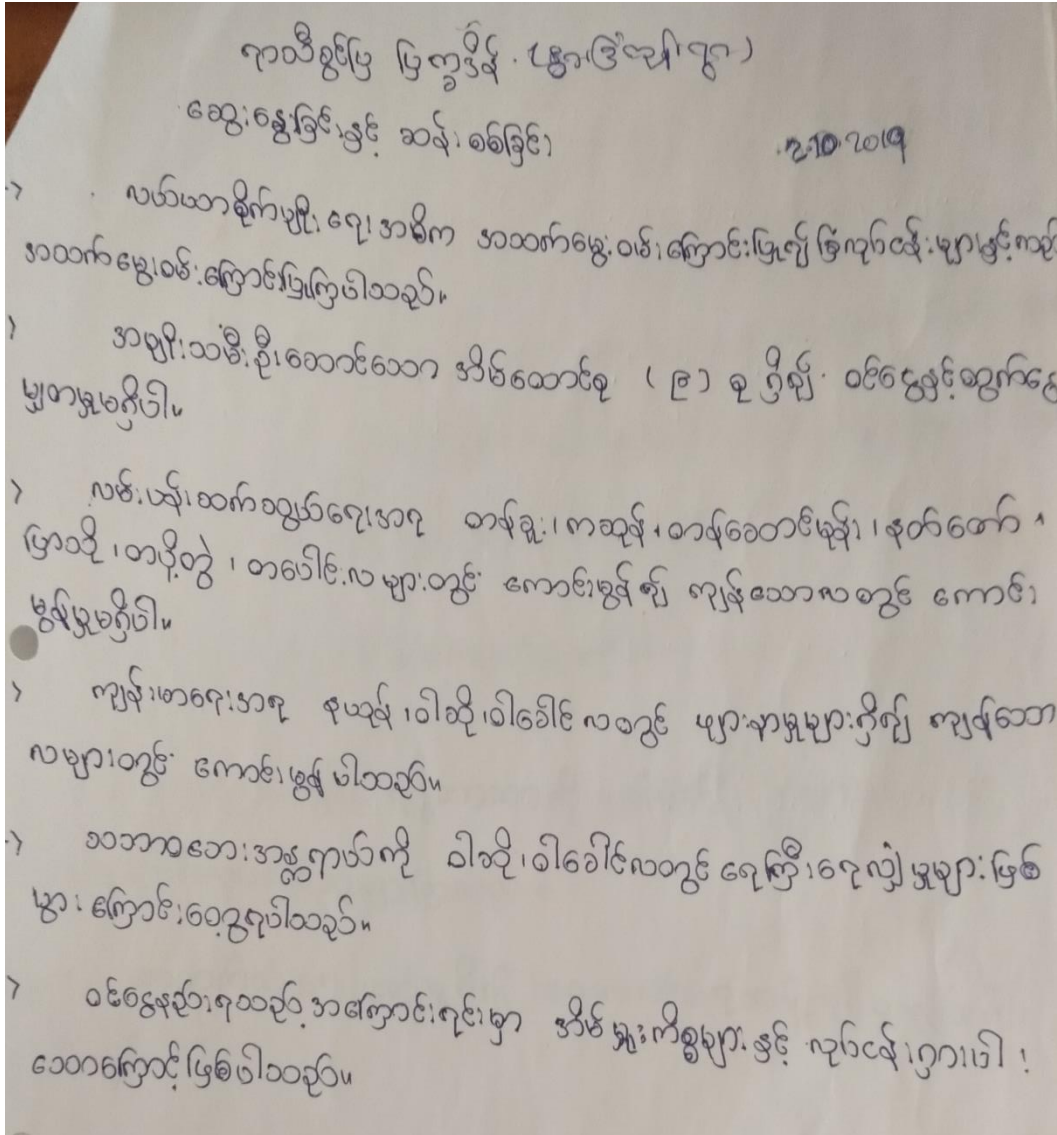 ရာသီခွင်ပြ ပြက္ခဒိန်
ဆွေးနွေးခြင်းနှင့် ဆန်းစစ်ခြင်း 2.10.2019
> လယ်ယာစိုက်ပျိုးရေးအဓိက အသက်မွေးဝမ်းကြောင်းပြု၍ ခြံလုပ်ငန်းများနှင့်လည်း
အသက်မွေးဝမ်းကြောင်းပြုကြပါသည်။
> အမျိုးသမီးဦးဆောင်သော အိမ်ထောင်စု (၉) စု ရှိ၍ ဝင်ငွေနှင့်ထွက်ငွေ
မျှတမှုမရှိပါ။
> လမ်းပန်းဆက်သွယ်ရေးအရ တန်ခူး၊ ကဆုန်၊ တန်ဆောင်မုန်း၊ နတ်တော်၊
ပြာသို၊ တပို့တွဲ၊ တပေါင်းလများတွင် ကောင်းမွန်၍ ကျန်သောလတွင် ကောင်း
မွန်မှုမရှိပါ။
> ကျန်းမာရေးအရ နယုန်၊ ဝါဆို၊ ဝါခေါင်လတွင် ဖျားနာမှုများရှိ၍ ကျန်သော
လများတွင် ကောင်းမွန်ပါသည်။
> သဘာဝဘေးအန္တရာယ်ကို ဝါဆို၊ ဝါခေါင်လတွင် ရေကြီးရေလျှံမှုများဖြစ်
ပွားကြောင်းတွေ့ရပါသည်။
> ဝင်ငွေနည်းရသည့်အကြောင်းရင်းမှာ အိမ်မှုကိစ္စများနှင့် လုပ်ငန်းရှားပါး
သောကြောင့်ဖြစ်ပါသည်။